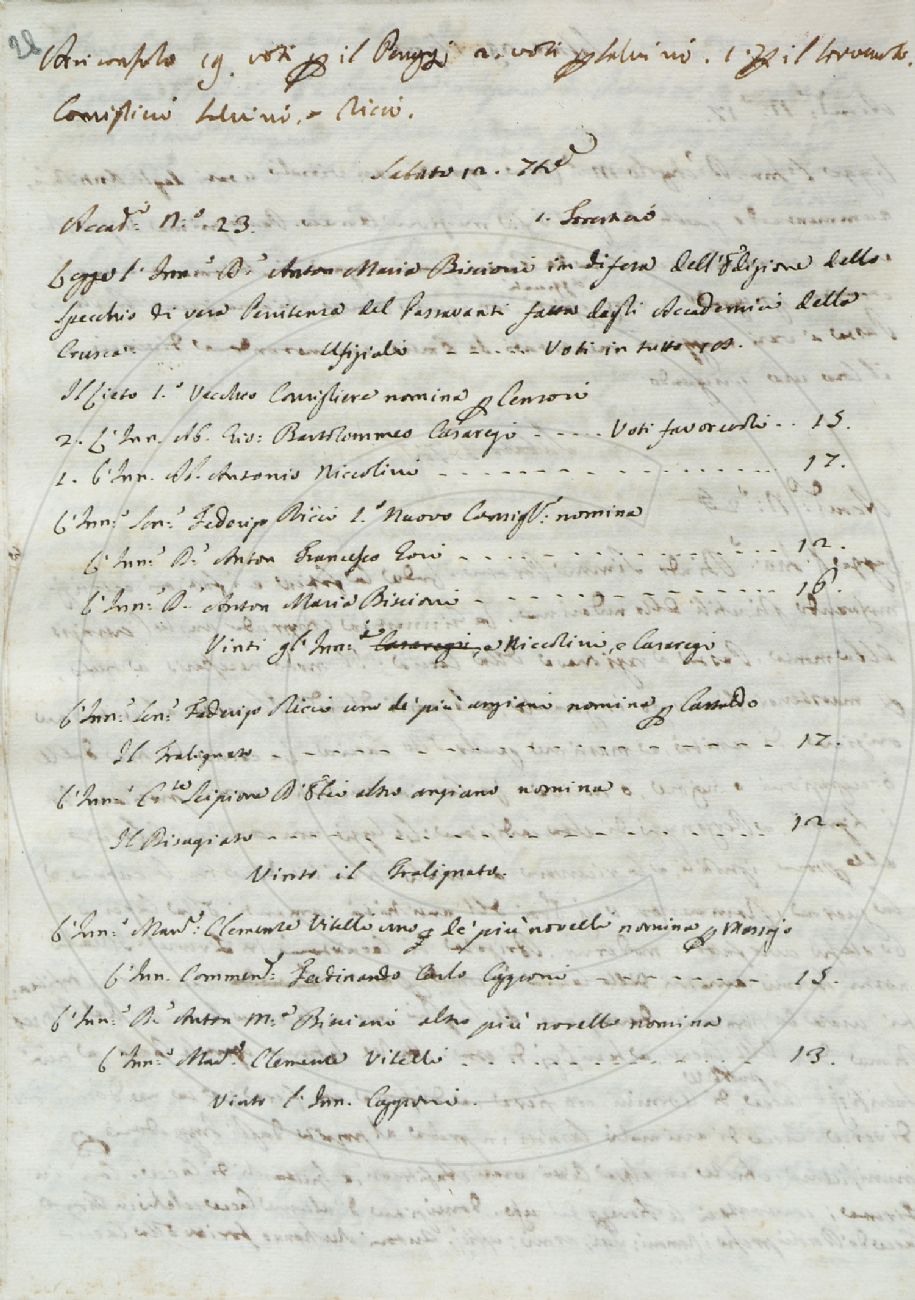 28
Arciconsolo 19. voti p il Puggi 2. voti p Salvini. 1. p il
Consiglieri Salvini, e Ricci.
Sabato 12. 7bre
Accad.a N.o 23.
Legge l'Inn.o D.r Anton Maria Biscioni in difesa dell'Edizione dello
Specchio di vera Penitenza del Passavanti fatta dagli Accademici della
Crusca. Ufiziali - - - - Voti in tutto
Il Lieto 1.o Vecchio Consigliere nomina p Censori
2. L'Inn. Ab. Gio: Bartolommeo Casaregi - - - - Voti favorevoli - - 15.
1. L'Inn. Ab. Antonio Niccolini - - - - - - - - 17.
L'Inn.o Sen.r Federigo Ricci 1.o Nuovo Consigl.e nomina
L'Inn.o D.r Anton Francesco Gori - - - - - - - - 12.
L'Inn.o D.r Anton Maria Biscioni - - - - - - - - 16
Vinti gl'Inn.i Casaregi, e Niccolini, e Casaregi
L'Inn.o Sen.r Federigo Ricci uno de' più anziani nomina p Castaldo
Il Tralignato - - - - - - - - 17.
L'Inn.o Scipione altro anziano nomina
Il Disagiato - - - - - - - - 12.
Vinto il Tralignato.
L'Inn.o Mar.e Clemente Vitelli uno de' più novelli nomina p Massajo
L'Inn. Commen.r Ferdinando Carlo Capponi - - - - - - 15.
L'Inn.o D.r Anton M.a Biscioni altro più novello nomina
L'Inn.o Mar.e Clemente Vitelli - - - - - - - - 13.
Vinto l'Inn. Capponi.